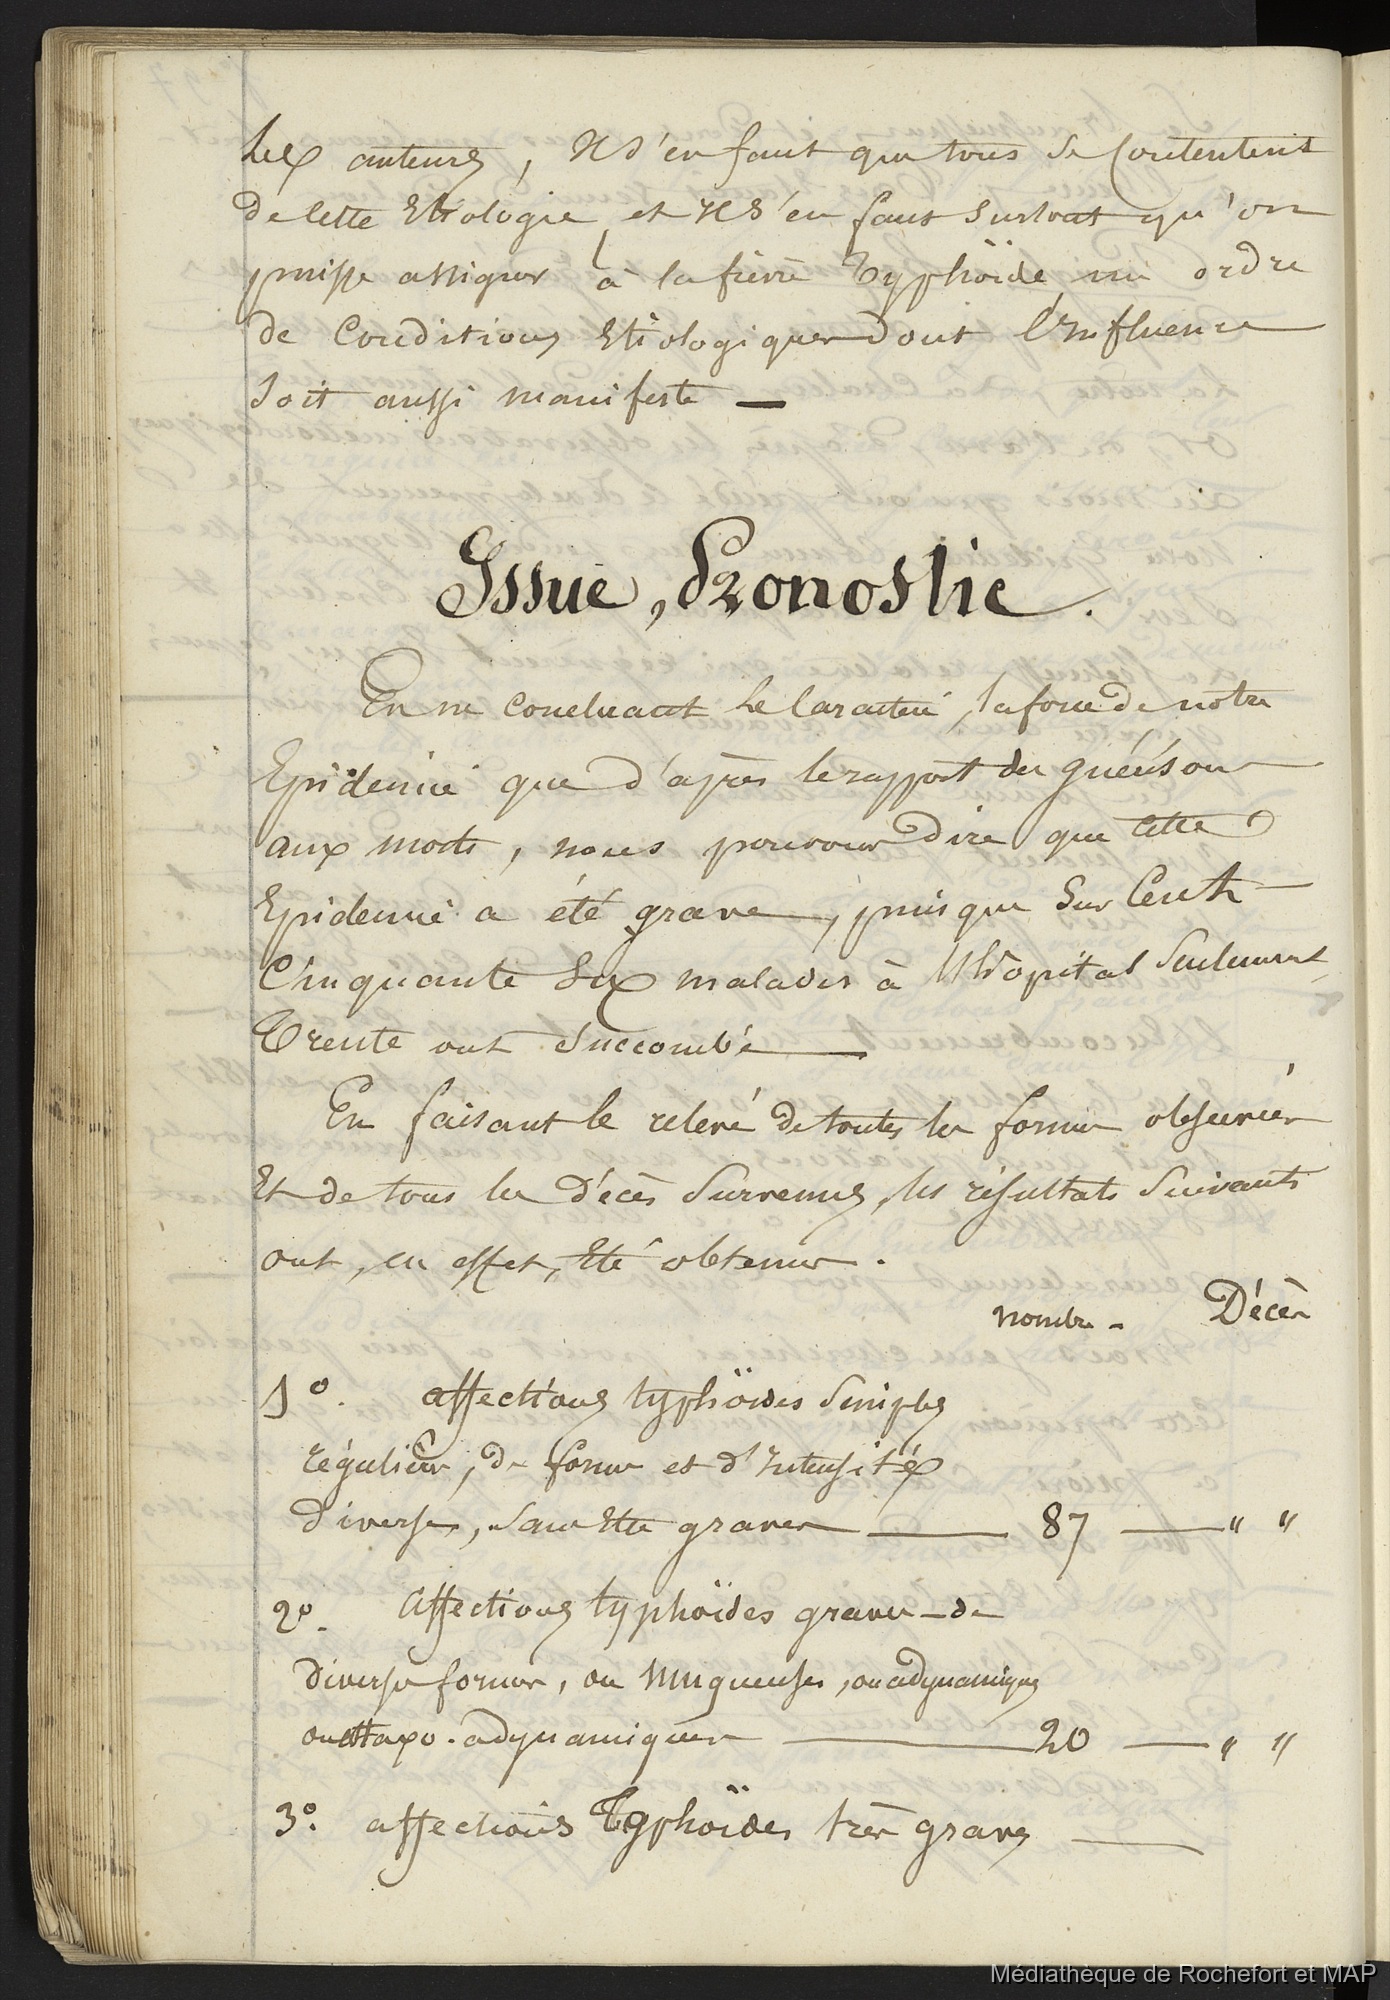 les auteurs, Il s'en faut que tous se contentent
de cette Etiologie, et Il s'en faut surtout qu'on
puisse assigner à la fièvre Typhoïde un ordre
de Conditions Etiologiques dont l'Influence
soit aussi manifeste —
Issue, Pronostic.
En ne concluant le caractère, la force de notre
Epidémie que d'après le rapport des guérisons
aux morts, nous pouvons dire que cette
Epidémie a été grave, puisque sur Cent
Cinquante six malades à l'hôpital seulement
Trente ont succombé —
En faisant le relevé de toutes les formes observées
Et de tous les Décès survenus, les résultats suivants
ont, en effet, Eté obtenus.
nombre - Décès
1º. affections typhoïdes simples
régulières, de forme et d'Intensité
diverses, sans être graves — 87 — " "
2º. Affections typhoïdes graves — de
diverses formes, ou muqueuses, ou adynamiques
ou ataxo-adynamiques — 20 — " "
3º. affections Typhoïdes très graves —
Médiathèque de Rochefort et MAP